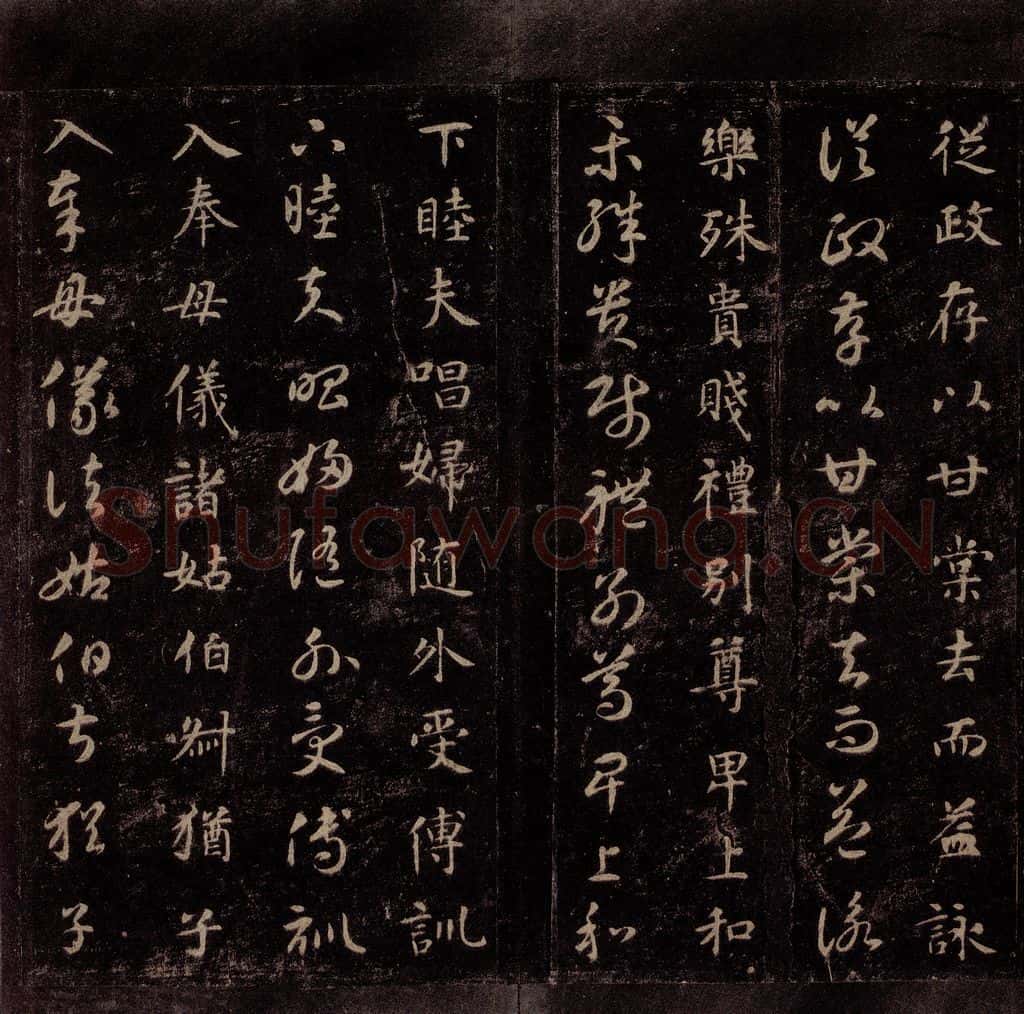 從政存以甘棠去而益詠
從政存以甘棠去而益詠
樂殊貴賤禮別尊卑上和
樂殊貴賤禮別尊卑上和
下睦夫唱婦随外受傅訓
下睦夫唱婦随外受傅訓
入奉母儀諸姑伯叔猶子
入奉母儀諸姑伯叔猶子
Shufawang.CN